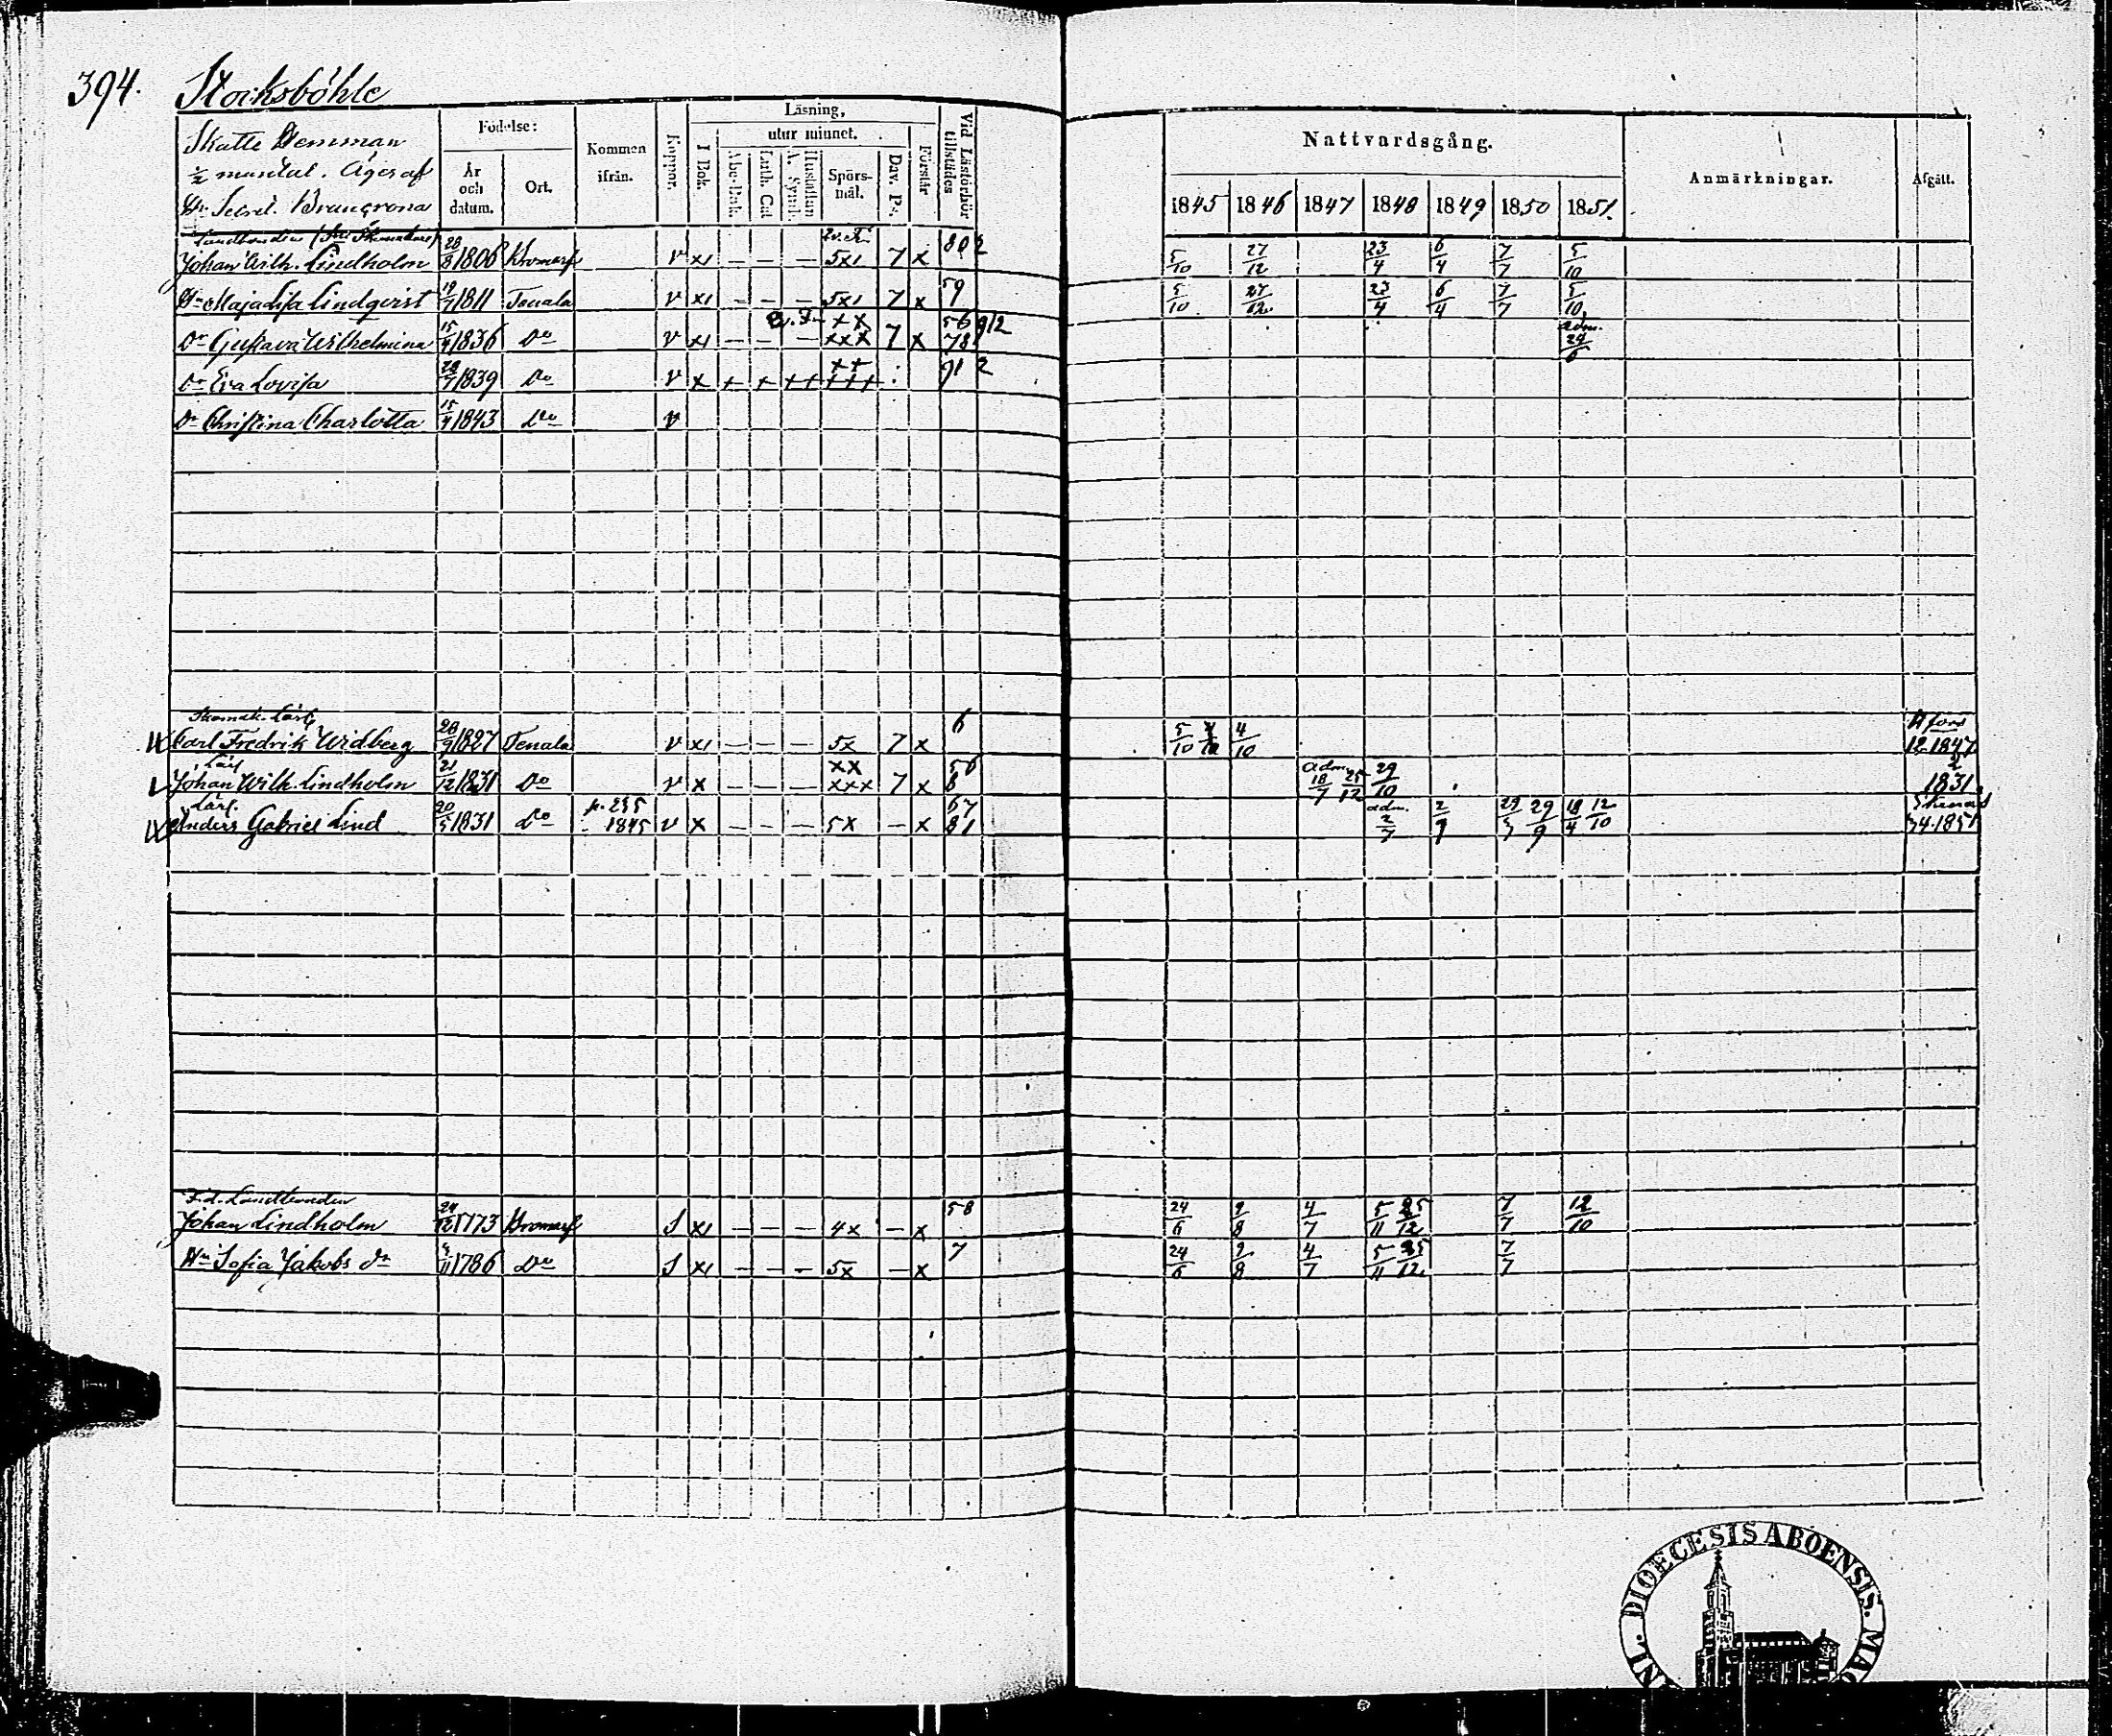 394. Stocksböhle
Skatte Hemman
½ mantal. Äges af
Hr Secret. Bruncrona
Födelse:
År och datum.
Ort.
Kommen ifrån.
Koppor.
Läsning,
I Bok.
utur minnet.
Abc-Bok.
Luth. Cat.
Hustaflan A. Symb.
Spörsmål.
Dav. Ps.
Förstår
Vid Läsförhör tillstädes
Nattvardsgång.
1845 1846 1847 1848 1849 1850 1851.
Anmärkningar.
Afgått.
Landbonden
Johan Wilh. Lindholm 28/8 1806 Bromarf v x1 – – – 5x1 7 x 5/10 27/12 23/4 6/4 7/7 5/10
Hu Maja Lisa Lindqvist 19/7 1811 Tenala v x1 – – – 5x1 7 x 59 5/10 27/12 23/4 6/4 7/7 5/10
Dr Gustava Wilhelmina 15/4 1836 Do v x1 – – – xx xxx 7 x 56 912 78 adm. 29/6
Dr Eva Lovisa 28/7 1839 Do v x + + ++ ++ +++ 91 2
Dr Christina Charlotta 15/4 1843 Do v
Skomak. Lärl.
Carl Fredrik Widberg 28/9 1827 Tenala v x1 – – – 5x 7 x 6 5/10 4/10 12 1847
Lärl.
Johan Wilh. Lindholm 21/12 1831 Do v x – – – xx xxx 7 x 56 8 adm. 18/7 25/12 29/10 1831
Lärl.
Anders Gabriel Lind 20/5 1831 Do p. 235 1845 v x – – – 5x – x 67 81 adm. 2/7 29/9 18/4 12/10 1851
F.d. Landbonden
Johan Lindholm 24/12 1773 Bromarf S x1 – – – 4x – x 58 24/6 2/8 4/7 5/11 25/12 7/7 12/10
Hu Sofia Jakobs dr 1786 Do S x1 – – – 5x – x 7 24/6 2/8 4/7 5/11 25/12 7/7
NL. DIOECESIS ABOENSIS. MAG